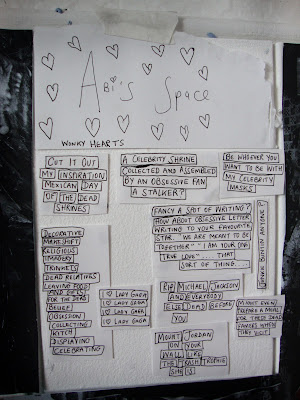 Abi's Space
WONKY HEARTS
CUT IT OUT
MY INSPIRATION
MEXICAN DAY
OF THE DEAD
SHRINES
A CELEBRITY SHRINE
COLLECTED AND ASSEMBLED
BY AN OBSESSIVE FAN
A STALKER?
BE WHOEVER YOU
WANT TO BE WITH
MY CELEBRITY
MASKS
FANCY A SPOT OF WRITING?
HOW ABOUT OBSESSIVE LETTER
WRITING TO YOUR FAVOURITE
STAR. WE ARE MEANT TO BE
TOGETHER" "I AM YOUR ONE
TRUE LOVE"... THAT
SORT OF THING....
DECORATIVE
MAKESHIFT
RELIGIOUS
IMAGERY
TRINKETS
DEAD RELATIVES
LEAVING FOOD
AND GIFTS
FOR THE DEAD
BELIEF
OBSESSION
COLLECTING
KITCH
DISPLAYING
CELEBRATING
I LADY GAGA
I LADY GAGA
I LADY GAGA
I LADY GAGA
RIP MICHAEL JACKSON
AND EVERYBODY
ELSE DEAD BEFORE
YOU
MOUNT JORDAN
ON YOUR
WALL LIKE
THE TROPHIE
SHE IS
ANYONE?
MIGHT EVEN
PREPARE A MEAL
FOR THESE DEAD
FAVORS WHEN
THEY VISIT